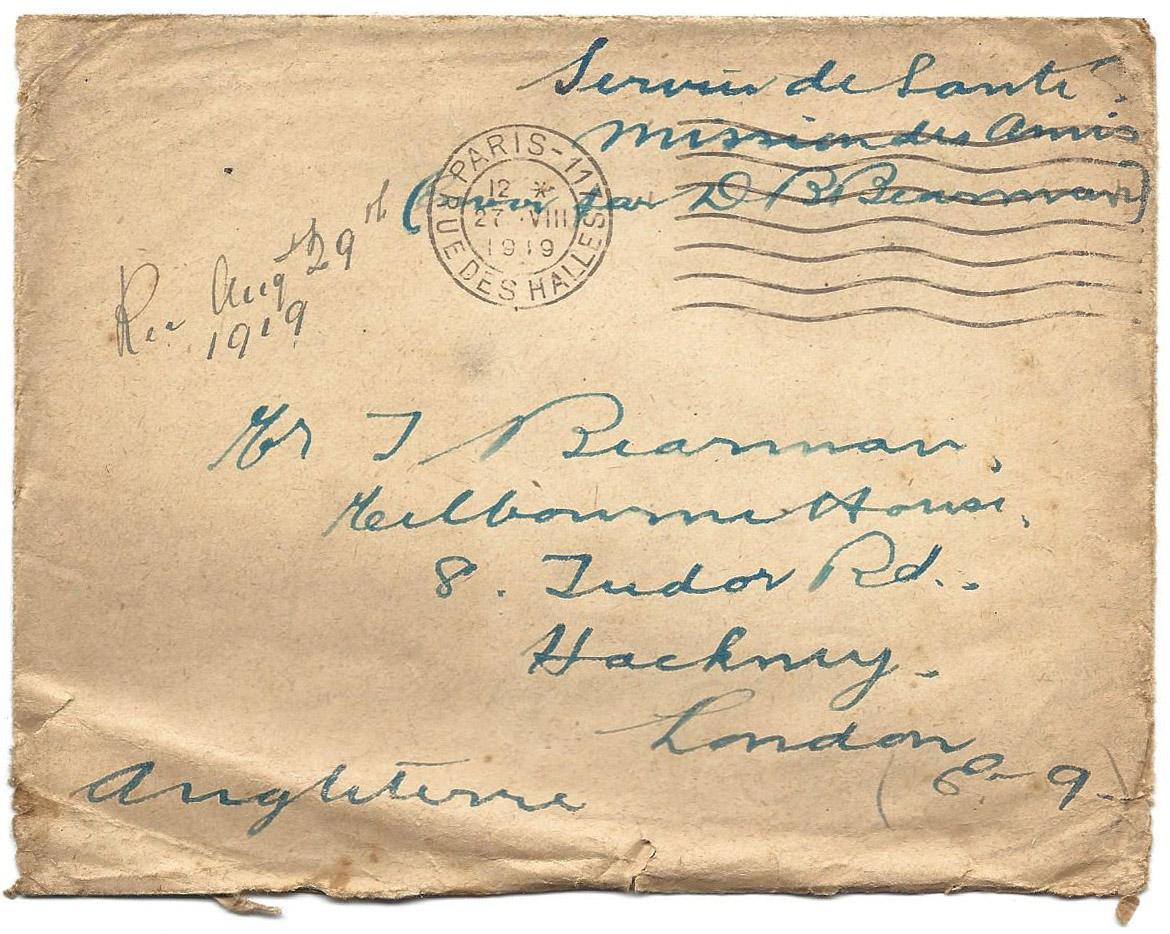 Service de Santé.
Mission des Amis
(Envoi par D B Bearman)
PARIS-11
RUE DES HALLES
12 *
27 · VIII
1919
Rec Aug 29th
1919
Mr T Bearman,
Melbourne House,
8. Tudor Rd.
Hackney.
London
(E-9-)
Angleterre